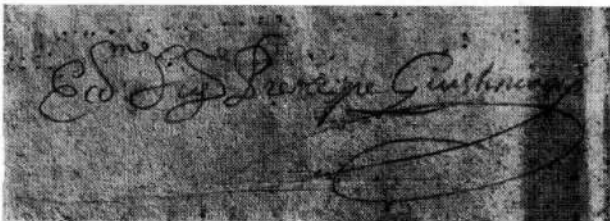 Ecc.mo Sig.re Prencipe Giustiniani